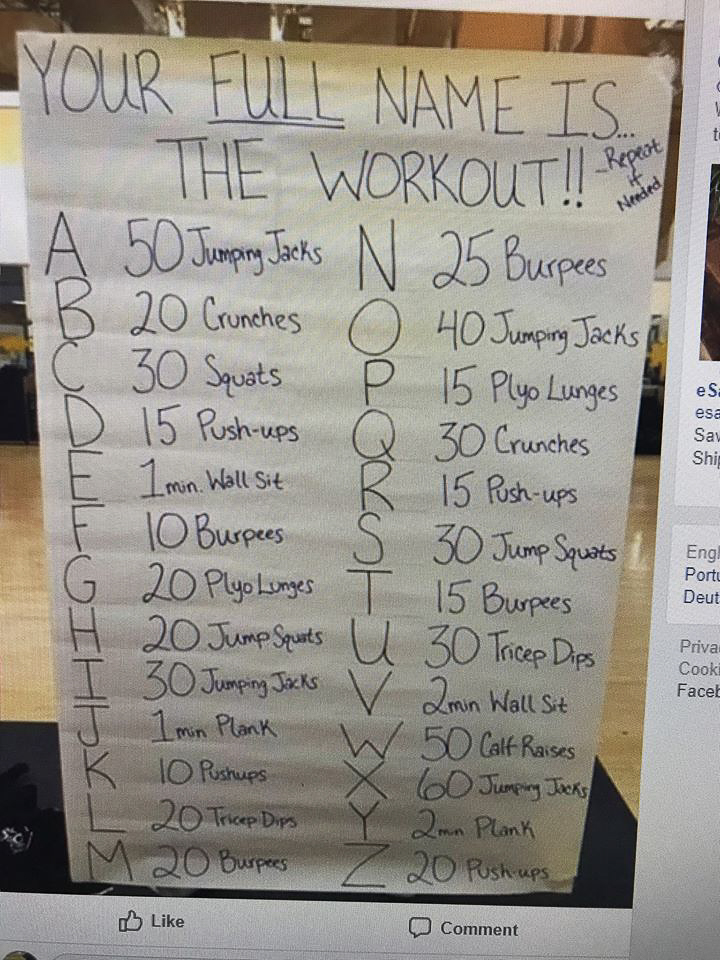 YOUR FULL NAME IS...
THE WORKOUT!!
-Repeat
if
Needed
A 50 Jumping Jacks
B 20 Crunches
C 30 Squats
D 15 Push-ups
E 1min. Wall Sit
F 10 Burpees
G 20 Plyo Lunges
H 20 Jump Squats
I 30 Jumping Jacks
J 1min Plank
K 10 Pushups
L 20 Tricep Dips
M 20 Burpees
N 25 Burpees
O 40 Jumping Jacks
P 15 Plyo Lunges
Q 30 Crunches
R 15 Push-ups
S 30 Jump Squats
T 15 Burpees
U 30 Tricep Dips
V 2min Wall Sit
W 50 Calf Raises
X 60 Jumping Jacks
Y 2min Plank
Z 20 Push-ups
Like
Comment